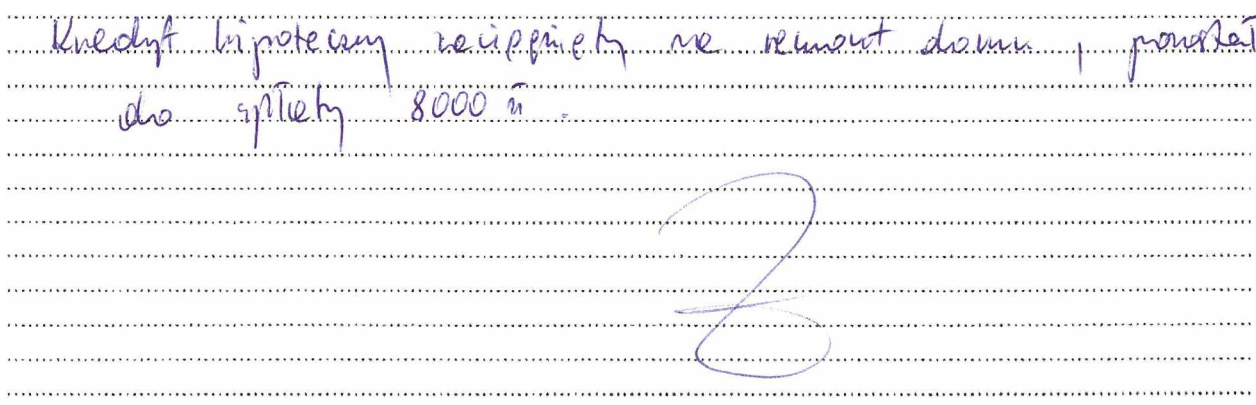 Kredyt hipoteczny zaciągnięty na remont domu, pozostał
do spłaty 8000 zł.